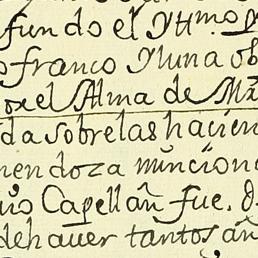 fundo el Yttmo
franco Yluna ob
or el Alma de Ma
da sobre las hacien
mendoza minciona
uio Capellañ fue. d
de hauer tantos añ